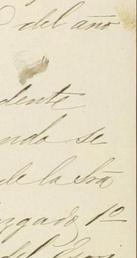 del año
dente
ndo se
de la Sra
zgado 1º
del